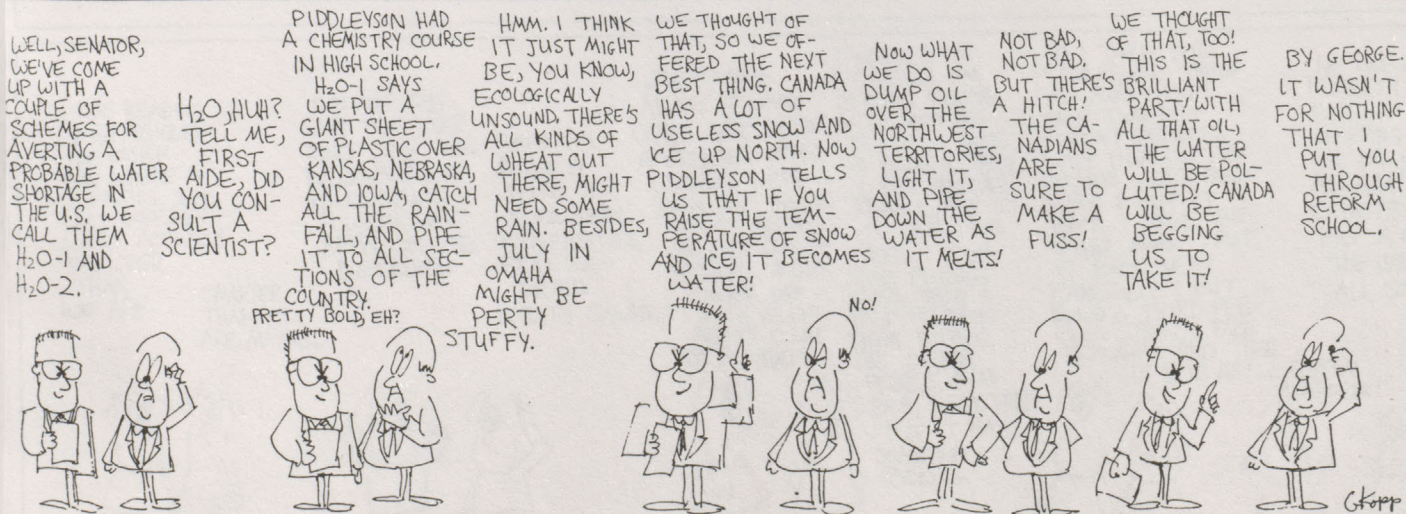 WELL, SENATOR,
WE'VE COME
UP WITH A
COUPLE OF
SCHEMES FOR
AVERTING A
PROBABLE WATER
SHORTAGE IN
THE U.S. WE
CALL THEM
H₂O-1 AND
H₂O-2.
H₂O, HUH?
TELL ME,
FIRST
AIDE, DID
YOU CON-
SULT A
SCIENTIST?
PIDDLEYSON HAD
A CHEMISTRY COURSE
IN HIGH SCHOOL.
H₂O-1 SAYS
WE PUT A
GIANT SHEET
OF PLASTIC OVER
KANSAS, NEBRASKA,
AND IOWA, CATCH
ALL THE RAIN-
FALL, AND PIPE
IT TO ALL SEC-
TIONS OF THE
COUNTRY.
PRETTY BOLD, EH?
HMM. I THINK
IT JUST MIGHT
BE, YOU KNOW,
ECOLOGICALLY
UNSOUND. THERE'S
ALL KINDS OF
WHEAT OUT
THERE, MIGHT
NEED SOME
RAIN. BESIDES,
JULY IN
OMAHA
MIGHT BE
PERTY
STUFFY.
WE THOUGHT OF
THAT, SO WE OF-
FERED THE NEXT
BEST THING. CANADA
HAS A LOT OF
USELESS SNOW AND
ICE UP NORTH. NOW
PIDDLEYSON TELLS
US THAT IF YOU
RAISE THE TEM-
PERATURE OF SNOW
AND ICE, IT BECOMES
WATER!
NO!
NOW WHAT
WE DO IS
DUMP OIL
OVER THE
NORTHWEST
TERRITORIES,
LIGHT IT,
AND PIPE
DOWN THE
WATER AS
IT MELTS!
NOT BAD,
NOT BAD.
BUT THERE'S
A HITCH!
THE CA-
NADIANS
ARE
SURE TO
MAKE A
FUSS!
WE THOUGHT
OF THAT, TOO!
THIS IS THE
BRILLIANT
PART! WITH
ALL THAT OIL,
THE WATER
WILL BE POL-
LUTED! CANADA
WILL BE
BEGGING
US TO
TAKE IT!
BY GEORGE.
IT WASN'T
FOR NOTHING
THAT I
PUT YOU
THROUGH
REFORM
SCHOOL.
GKopp